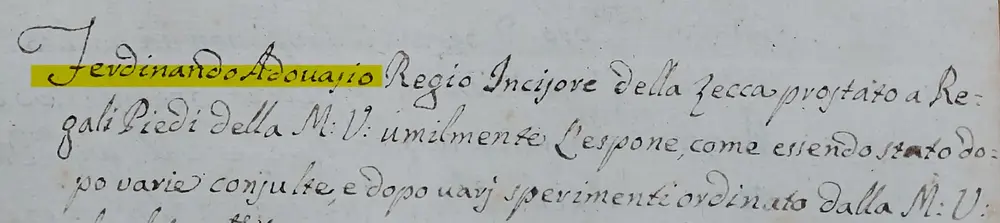 Ferdinando Adouasio Regio Incisore della Zecca prostato a Re=
gali Piedi della M: V: umilmente L'espone, come essendo stato do=
po varie consulte, e dopo varj sperimenti ordinato dalla M: V: